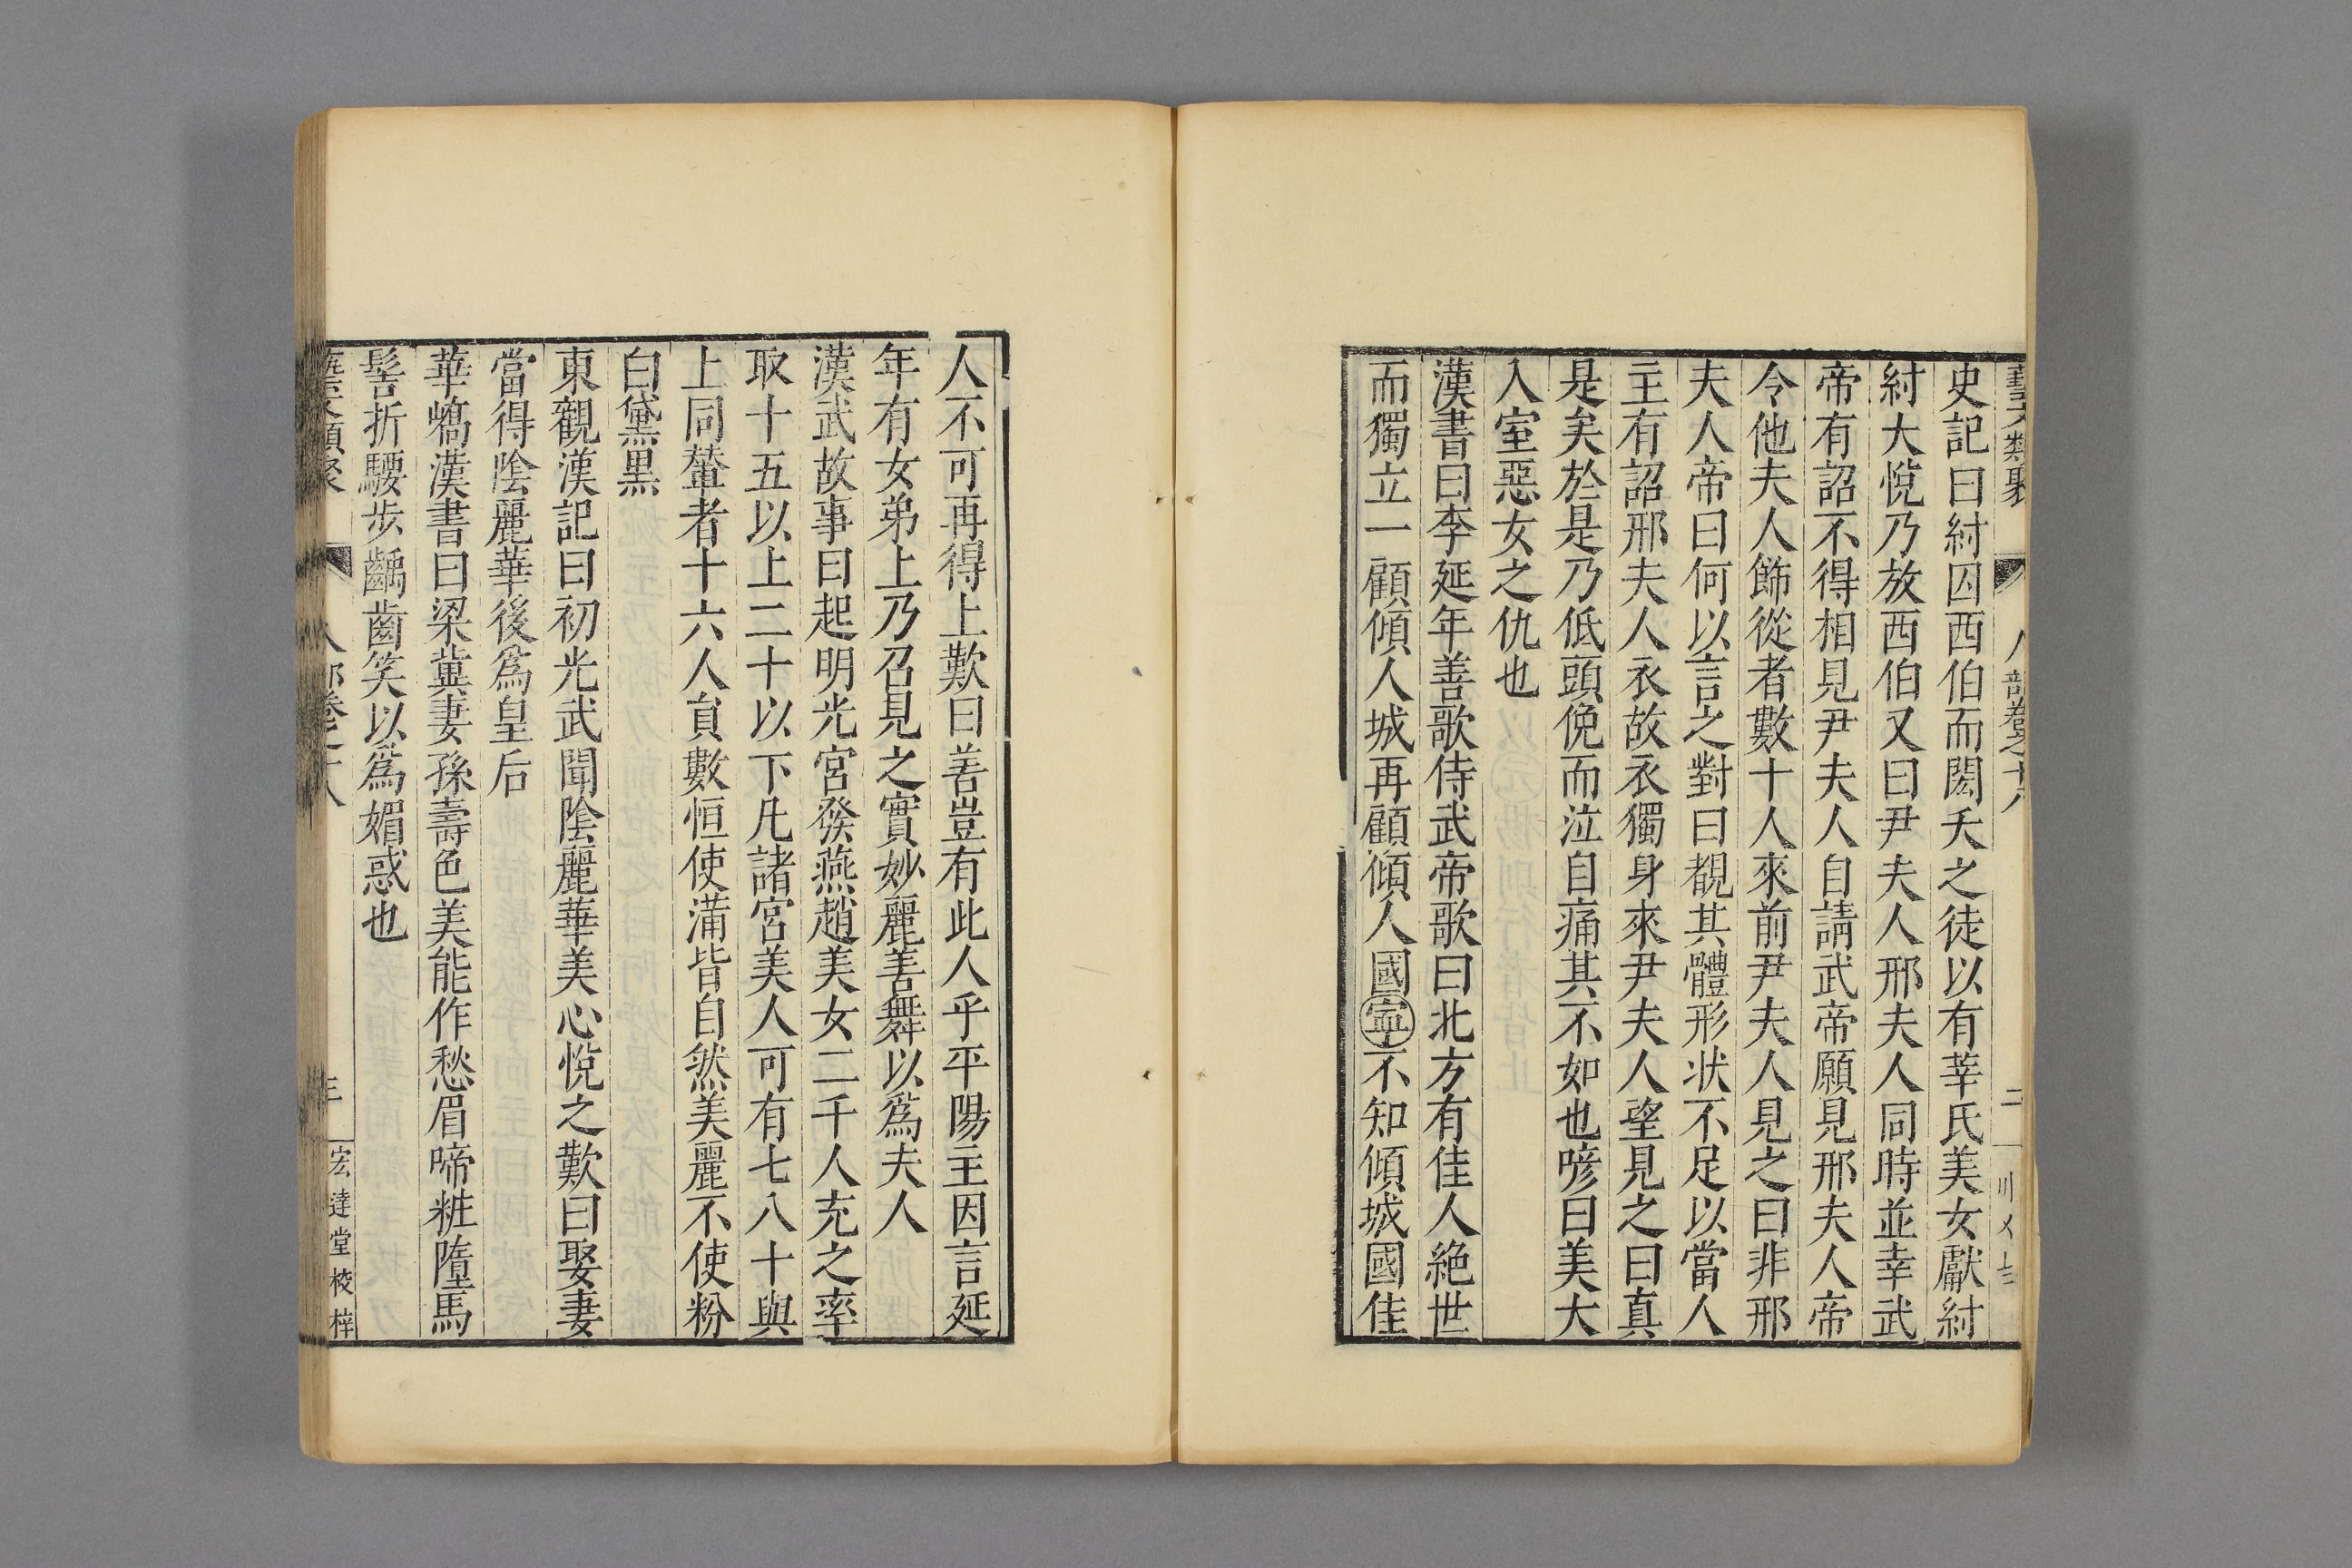 藝文類聚 人部卷之十八 二
史記曰紂囚西伯而閎夭之徒以有莘氏美女獻紂
紂大悅乃放西伯又曰尹夫人邢夫人同時並幸武
帝有詔不得相見尹夫人自請武帝願見邢夫人帝
令他夫人飾從者數十人來前尹夫人見之曰非邢
夫人帝曰何以言之對曰覩其體形狀不足以當人
主有詔邢夫人衣故衣獨身來尹夫人望見之曰真
是矣於是乃低頭俛而泣自痛其不如也喭曰美大
入室惡女之仇也
漢書曰李延年善歌侍武帝歌曰北方有佳人絶世
而獨立一顧傾人城再顧傾人國寧不知傾城國佳
人不可再得上歎曰善豈有此人乎平陽主因言延
年有女弟上乃召見之實妙麗善舞以爲夫人
漢武故事曰起明光宮發燕趙美女二千人充之率
取十五以上二十以下凡諸宮美人可有七八十與
上同輦者十六人貟數恒使滿皆自然美麗不使粉
白黛黒
東觀漢記曰初光武聞陰麗華美心悅之歎曰娶妻
當得陰麗華後爲皇后
華嶠漢書曰梁冀妻孫壽色美能作愁眉啼粧墮馬
髻折腰步齲齒笑以爲媚惑也
藝文類聚 人部卷之十八 三 宏達堂校梓